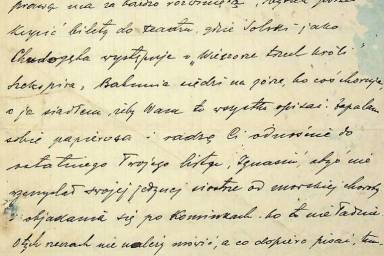 prawą ma za bardzo rozwiniętą
kupić bilety do teatru, gdzie Solski jako
Chudogęba występuje w "Wieczorze trzech króli"
Szekspira, Babunia siedzi na górze, bo coś choruje,
a ja siadłem, żeby Wam to wszystko opisać. Zapalam
sobie papierosa i radzę Ci odnośnie do
ostatniego Twojego listu, Ignasiu, abyś nie
wymyślał swojej jedynej siostrze od morskiej choroby
i objadania się po Kominkach. bo to nie ładnie
O tych rzeczach nie należy mówić, a co dopiero pisać, tem